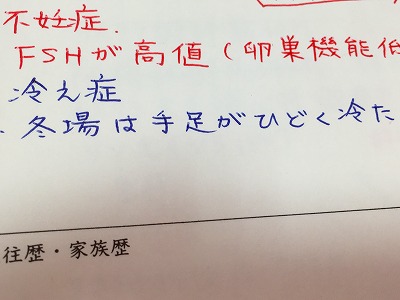 不妊症.
FSHが高値(卵巣機能低
冷え症
・冬場は手足がひどく冷た
往歴・家族歴